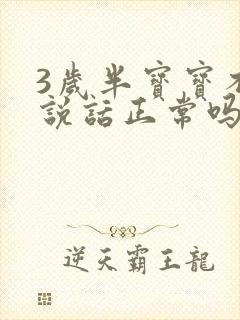 3歲半寶寶不
說話正常嗎
逆天霸王龍